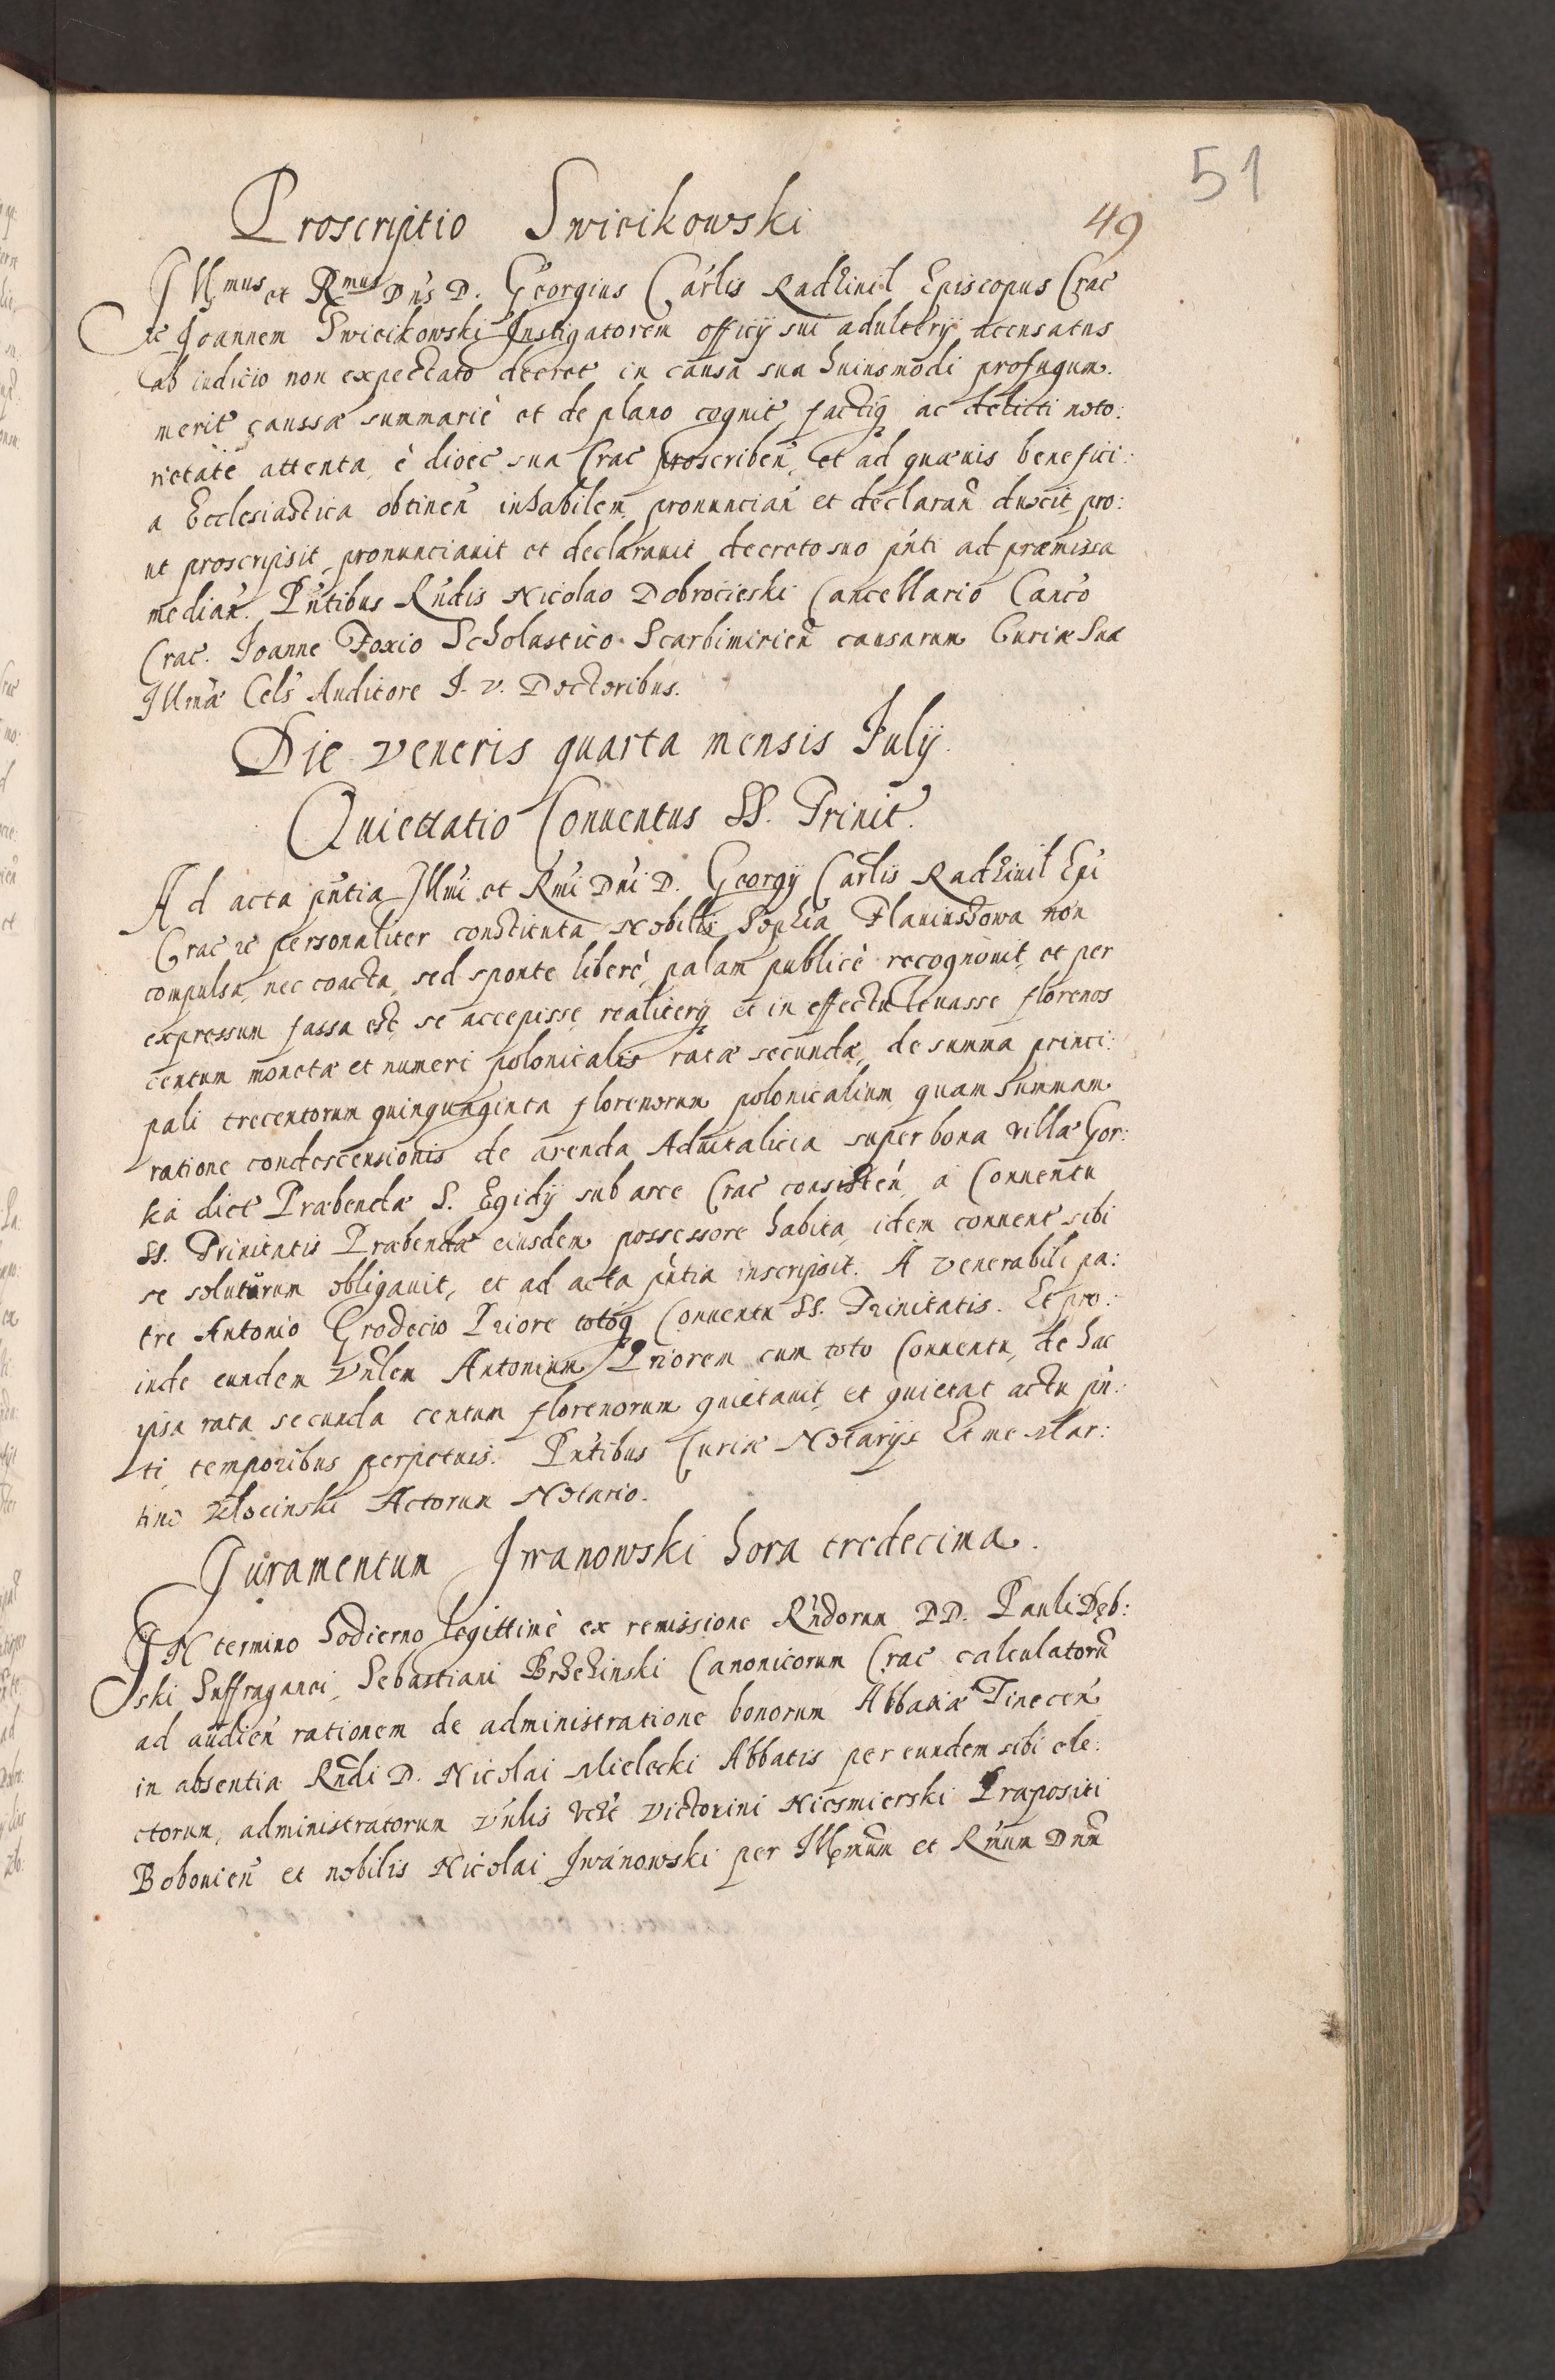 51
49
Proscriptio Swicikowski
Illmus et Rmus Dns D. Georgius Carlis Radzivil Episcopus Crac
&c Joannem Swicikowski Instigatorem officij sui adulterij accusatus
ab iudicio non expectato decret in causa sua huiusmodi profugum.
merit caussæ summariè et de plano cognit factiq ac delicti noto:
rietate attenta è dioec sua Crac proscriben et ad quævis benefici:
a Ecclesiastica obtinen inhabilem pronuncian et declaran duxit, pro:
ut proscripsit, pronunciavit et declaravit decreto suo pnti ad præmissa
median. Pntibus Rndis Nicolao Dobrocieski Cancellario Canco
Crac. Joanne Foxio Scholastico Scarbimirien causarum Curiæ Suæ
Illmæ Cels Auditore J. V. Doctoribus.
Die Veneris quarta mensis Julij.
Quiettatio Conventus SS. Trinit.
Ad acta pntia Illmi et Rmi Dni D. Georgij Carlis Radzivil Epi
Crac &c personaliter constituta Nobilis Sophia Flaviussowa non
compulsa, nec coacta, sed sponte liberè, palam publicè recognovit, et per
expressum fassa est, se accepisse, realiterq et in effectu levasse florenos
centum monetæ et numeri polonicalis ratæ secundæ, de summa princi:
pali trecentorum quinquaginta florenorum polonicalium, quam summam
ratione condescensionis de arenda Advitalicia super bona villæ Gor:
ka dict Præbendæ S. Egidij sub arce Crac consisten, a Conventu
SS. Trinitatis Præbendæ eiusdem possessore habita, idem convent sibi
se soluturum obligavit, et ad acta pntia inscripsit. A venerabile pa:
tre Antonio Grodecio Priore totoq Conventu SS. Trinitatis. Et pro:
inde eundem Vnlem Antonium Priorem cum toto Conventu, de hac
ipsa rata secunda centum florenorum quietavit, et quietat actu pn:
ti, temporibus perpetuis. Pntibus Curiæ Notarijs Et me Mar:
tino Zlocinski Actorum Notario.
Juramentum Jwanowski hora tredecima.
IN termino hodierno legittimè ex remissione Rndorum DD. Pauli Dęb:
ski Suffraganei, Sebastiani Brzezinski Canonicorum Crac calculatorum
ad audien rationem de administratione bonorum Abbatiæ Tinecen
in absentia Rndi D. Nicolai Mielecki Abbatis per eundem sibi ele:
ctorum, administratorum Vnlis Victorini Niesmierski Præpositi
Bobovien et nobilis Nicolai Jwanowski per Illmum et Rmum Dnm